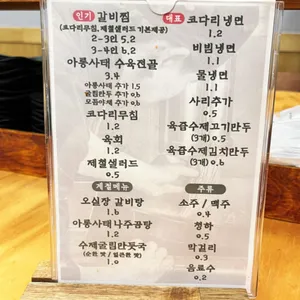 인기 갈비찜
(코다리무침, 제철샐러드 기본제공)
2-3인 5.2
3-4인 6.2
아롱사태 수육전골
3.4
아롱사태 추가 1.5
굴림만두 추가 0.6
모듬야채 추가 0.6
코다리무침
1.2
육회
1.2
제철샐러드
0.5
계절메뉴
오실장 갈비탕
1.2
아롱사태나주곰탕
1.2
수제굴림만둣국
(순한 맛 / 얼큰한 맛) 1.0
대표 코다리냉면
1.2
비빔냉면
1.1
물냉면
1.1
사리추가
0.5
육즙수제고기만두
(3개) 0.5
육즙수제김치만두
(3개) 0.6
주류
소주 / 맥주
0.4
청하
0.5
막걸리
0.3
음료수
0.2